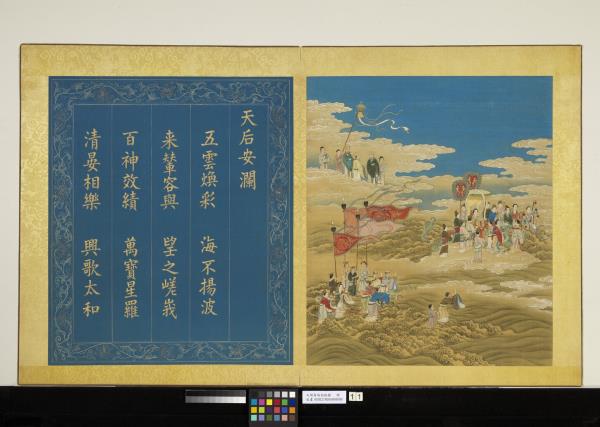 天后安瀾
五雲煥彩 海不揚波
来輦容與 望之嵯峩
百神效績 萬寶星羅
清晏相樂 興歌太和
11